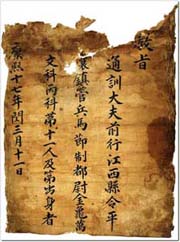 敎旨
通訓大夫前行江西縣令平
壤鎭管兵馬節制都尉金龜萬
文科丙科第十一人及第出身者
康熙十七年閏三月十一日